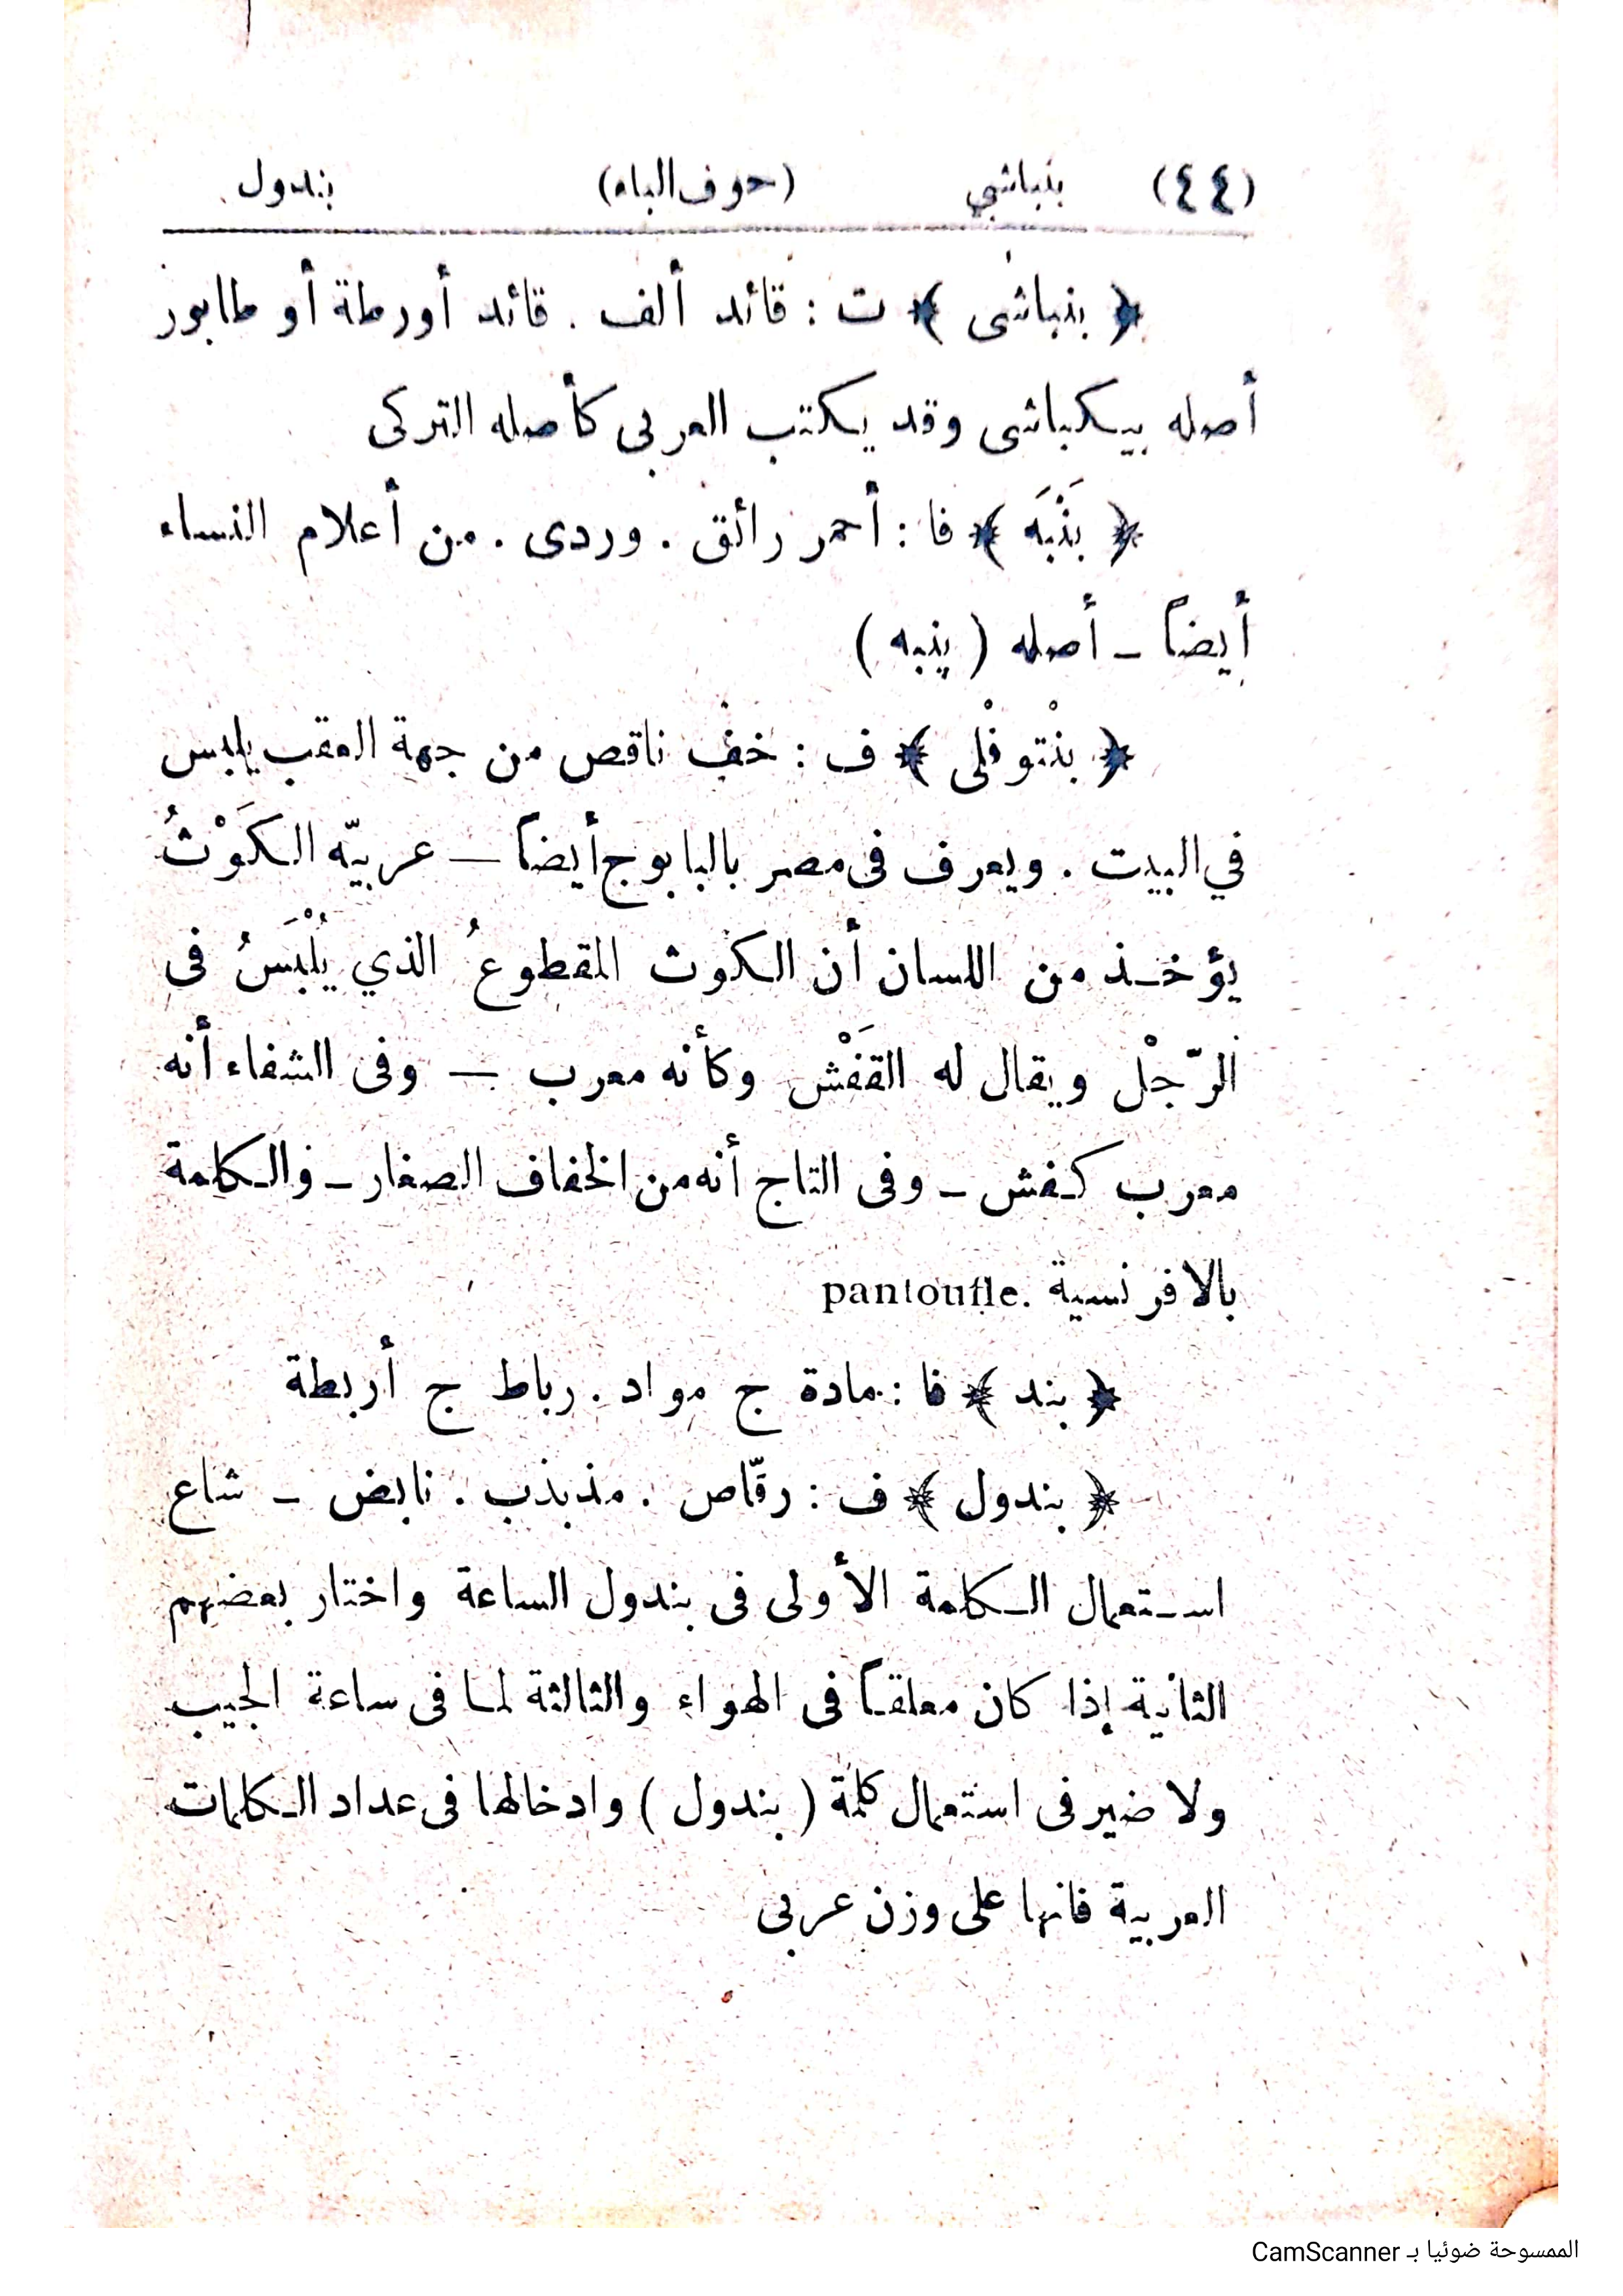 (٤٤) بنباشي (حرف الباء) بندول
﴿ بنباشى ﴾ ت : قائد ألف . قائد أورطة أو طابور
أصله بيكباشى وقد يكتب العربى كأصله التركى
﴿ بَنْبَه ﴾ فا : أحمر رائق . وردى . من أعلام النساء
أيضاً ــ أصله ( پنبه )
﴿ بنْتوفْلى ﴾ ف : خف ناقص من جهة العقب يلبس
في البيت . ويعرف فى مصر بالبابوج أيضاً ــ عربيّه الكَوْثُ
يؤخذ من اللسان أن الكوث المقطوعُ الذي يُلْبَسُ فى
الرّجْل ويقال له القَفْش وكأنه معرب ــ وفى الشفاء أنه
معرب كفش ــ وفى التاج أنه من الخفاف الصغار ــ والكلمة
بالافرنسية pantoufle.
﴿ بند ﴾ فا : مادة ج مواد . رباط ج أربطة
﴿ بندول ﴾ ف : رقّاص . مذبذب . نابض ــ شاع
استعمال الكلمة الأولى فى بندول الساعة واختار بعضهم
الثانية إذا كان معلقاً فى الهواء والثالثة لما فى ساعة الجيب
ولا ضير فى استعمال كلمة ( بندول ) وادخالها فى عداد الكلمات
العربية فانها على وزن عربى
الممسوحة ضوئيا بـ CamScanner